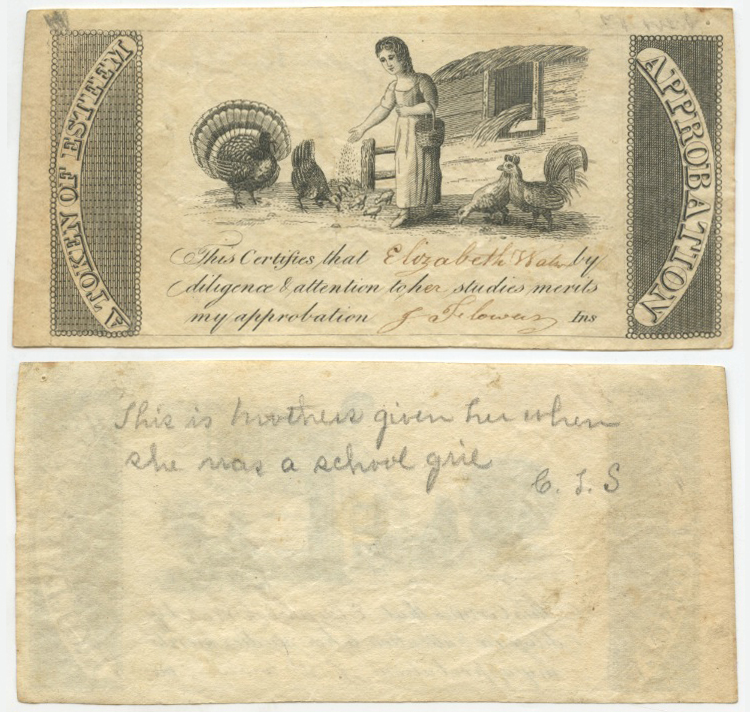 A TOKEN OF ESTEEM
This Certifies, that Elizabeth Wates by
diligence & attention to her studies, merits
my approbation J Flowers Ins
APPROBATION
This is mothers given her when
she was a school grie
C. I. S